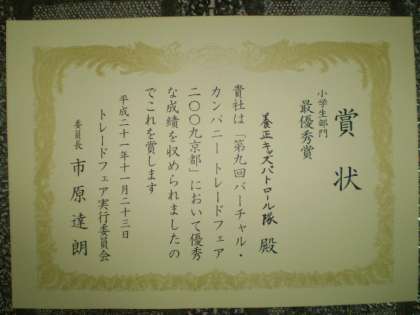 賞状
小学生部門
最優秀賞
養正キッズパトロール隊 殿
貴社は「第九回バーチャル・
カンパニー トレードフェア
二〇〇九京都」において優秀
な成績を収められましたの
でこれを賞します
平成二十一年十一月二十三日
トレードフェア実行委員会
委員長 市原達朗